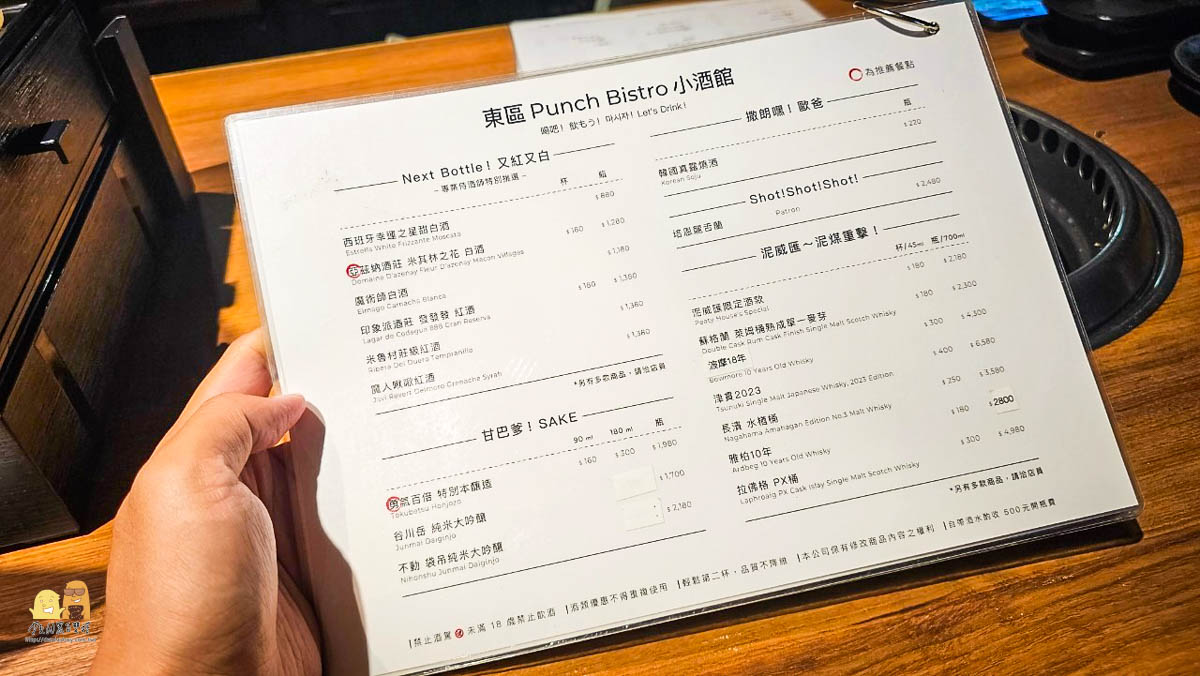 東區 Punch Bistro 小酒館
喝吧！飲もう！마시자！Let's Drink!
為推薦餐點
Next Bottle！又紅又白
－專業侍酒師特別推選－
杯 瓶
西班牙幸運之星甜白酒 $880
Estrella White Frizzante Moscata
亞茲納酒莊 米其林之花 白酒 $160 $1,280
Domaine D'azenay Fleur D'azenay Macon Villages
魔術師白酒 $1,180
Elmago Garnacha Blanca
印象派酒莊 發發發 紅酒 $180 $1,360
Lagar de Codegua 888 Gran Reserva
米魯村莊級紅酒 $1,360
Ribera Del Duero Tempranillo
魔人啾啾紅酒 $1,380
Javi Revert Delmoro Grenacha Syrah
*另有多款商品，請洽店員
甘巴爹！SAKE
90 ml 180 ml 瓶
勇氣百倍 特別本釀造 $160 $300 $1,980
Tokubetsu Honjozo
谷川岳 純米大吟釀 $1,700
Junmai Daiginjo
不動 袋吊純米大吟釀 $2,180
Nihonshu Junmai Daiginjo
撒朗嘿！歐爸
瓶
韓國真露燒酒 $220
Korean Soju
Shot!Shot!Shot!
培恩龍舌蘭 $2,480
Patron
泥威匯～泥煤重擊！
杯/45ml 瓶/700ml
泥威匯限定酒款 $180 $2,180
Peaty House's Special
蘇格蘭 萊姆桶熟成單一麥芽 $180 $2,300
Double Cask Rum Cask Finish Single Malt Scotch Whisky
波摩18年 $300 $4,300
Bowmore 10 Years Old Whisky
津貫2023 $400 $6,580
Tsunuki Single Malt Japanese Whisky, 2023 Edition
長濱 水楢桶 $250 $3,580
Nagahama Amahagan Edition No.3 Malt Whisky
雅柏10年 $180 $2800
Ardbeg 10 Years Old Whisky
拉佛格 PX桶 $300 $4,980
Laphroaig PX Cask Islay Single Malt Scotch Whisky
*另有多款商品，請洽店員
|禁止酒駕 未滿 18 歲禁止飲酒 |酒類優惠不得重複使用 |輕鬆第二杯，品質不降級 |本公司保有修改商品內容之權利 |自帶酒水酌收 500元開瓶費